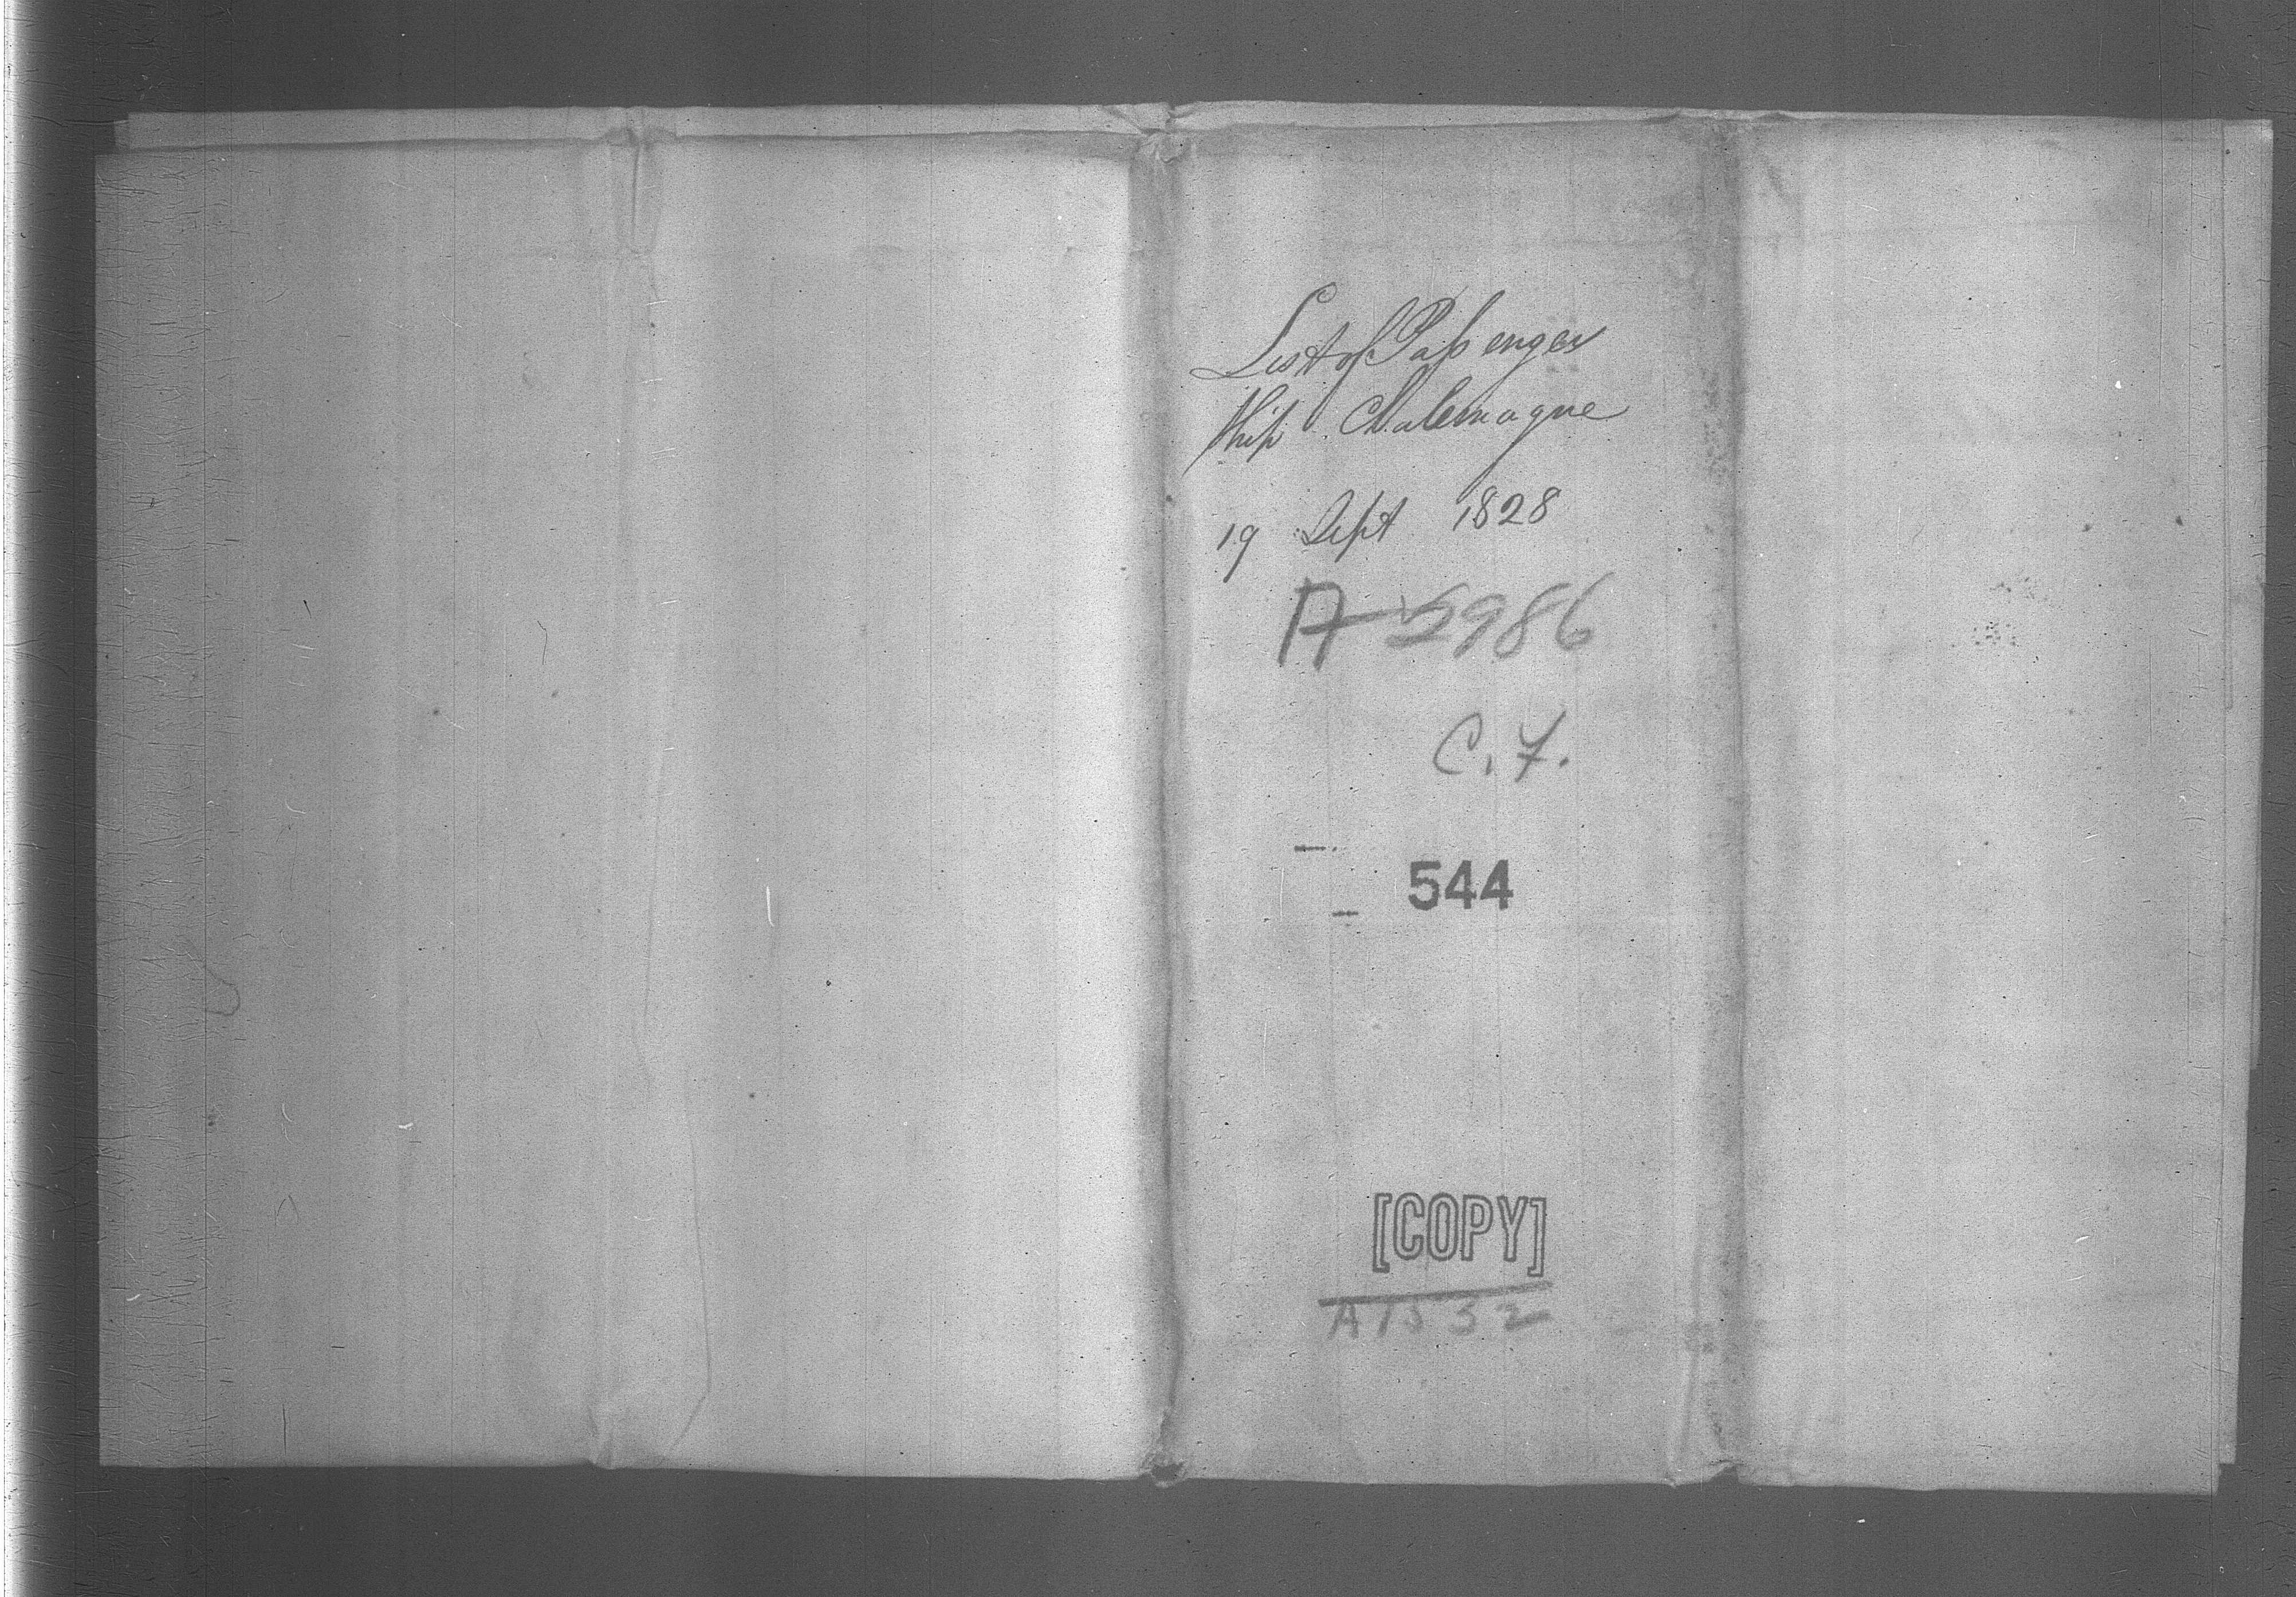 List of Passenger
Ship Chalemagne
19 Sept 1828
A-5986
C. F.
544
[COPY]
A1532